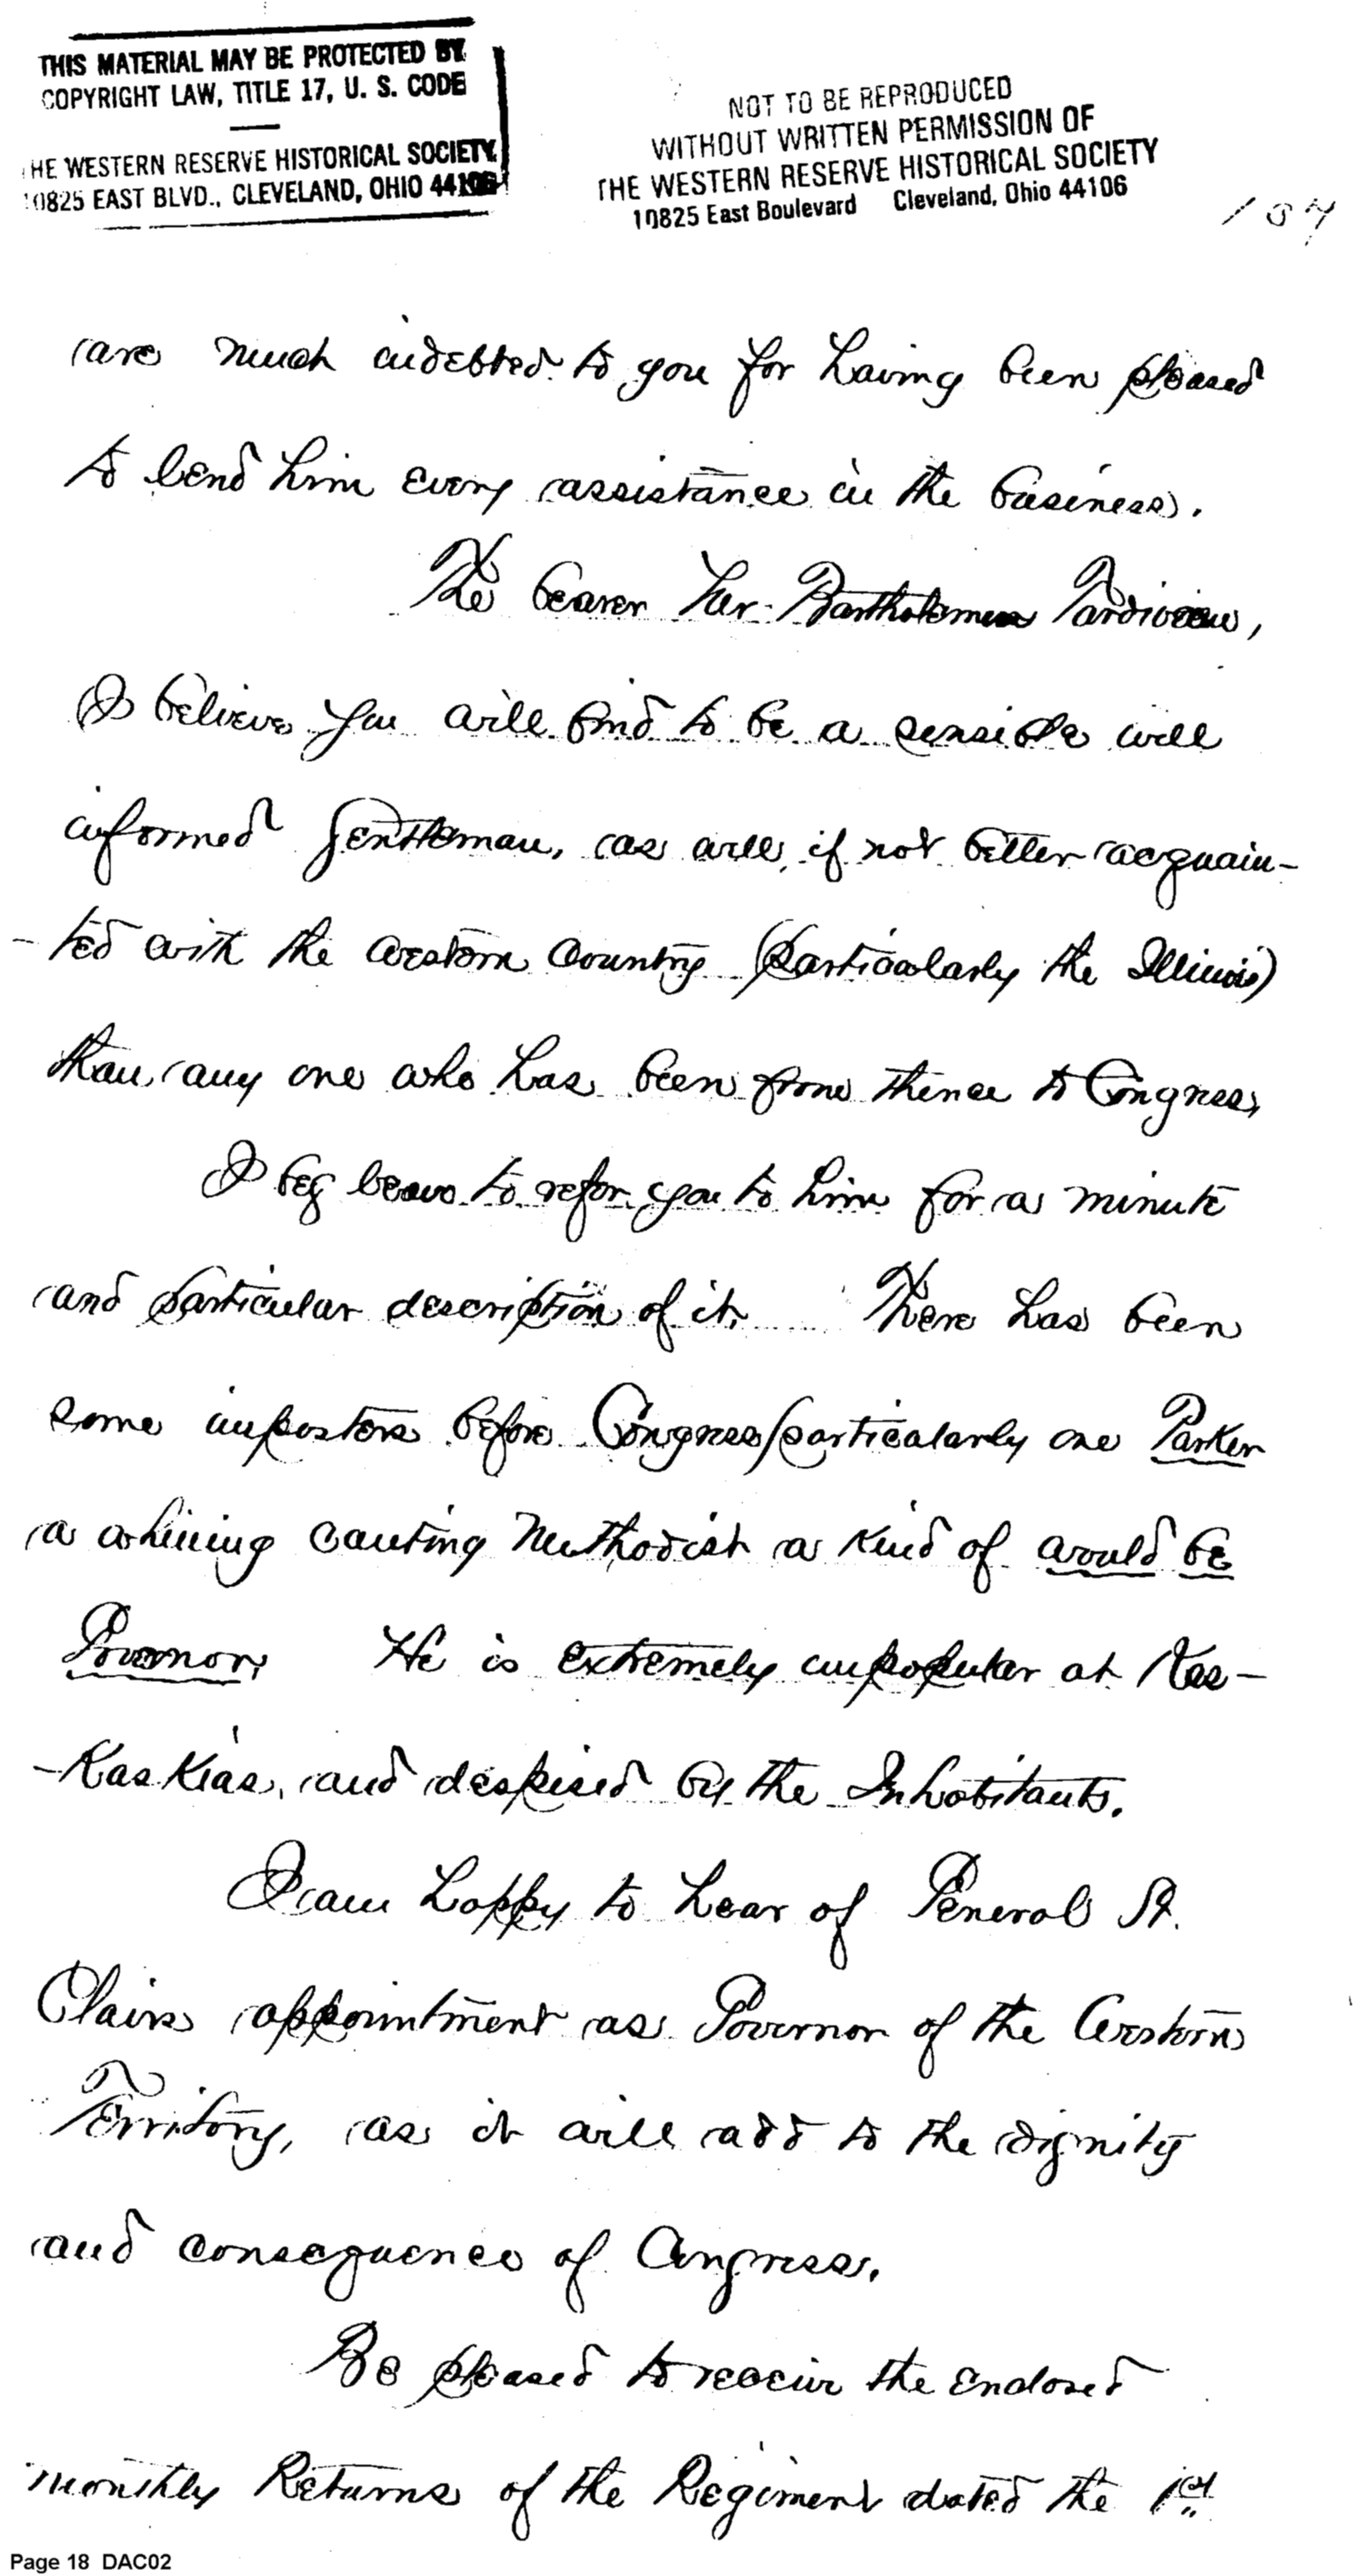 THIS MATERIAL MAY BE PROTECTED BY
COPYRIGHT LAW, TITLE 17, U. S. CODE
THE WESTERN RESERVE HISTORICAL SOCIETY
10825 EAST BLVD., CLEVELAND, OHIO 44106
NOT TO BE REPRODUCED
WITHOUT WRITTEN PERMISSION OF
THE WESTERN RESERVE HISTORICAL SOCIETY
10825 East Boulevard Cleveland, Ohio 44106
are much indebted to you for having been pleased
to lend him every assistance in the business.
The bearer Mr. Bartholemew Tardiveau,
I believe you will find to be a sensible well
informed Gentleman, as well, if not better acquain-
-ted with the western Country (particularly the Illinois)
than any one who has been from thence to Congress,
I beg leave to refer you to him for a minute
and particular description of it. There has been
some imposters before Congress particularly one Parker
a whining canting Methodist a kind of would be
Governor, He is extremely unpopular at Kas-
-Kaskias, and despised by the Inhabitants.
I am happy to hear of General St.
Clairs appointment as Governor of the Western
Territory, as it will add to the dignity
and consequence of Congress.
Be pleased to receive the enclosed
monthly Returns of the Regiment dated the 1st
Page 18 DAC02